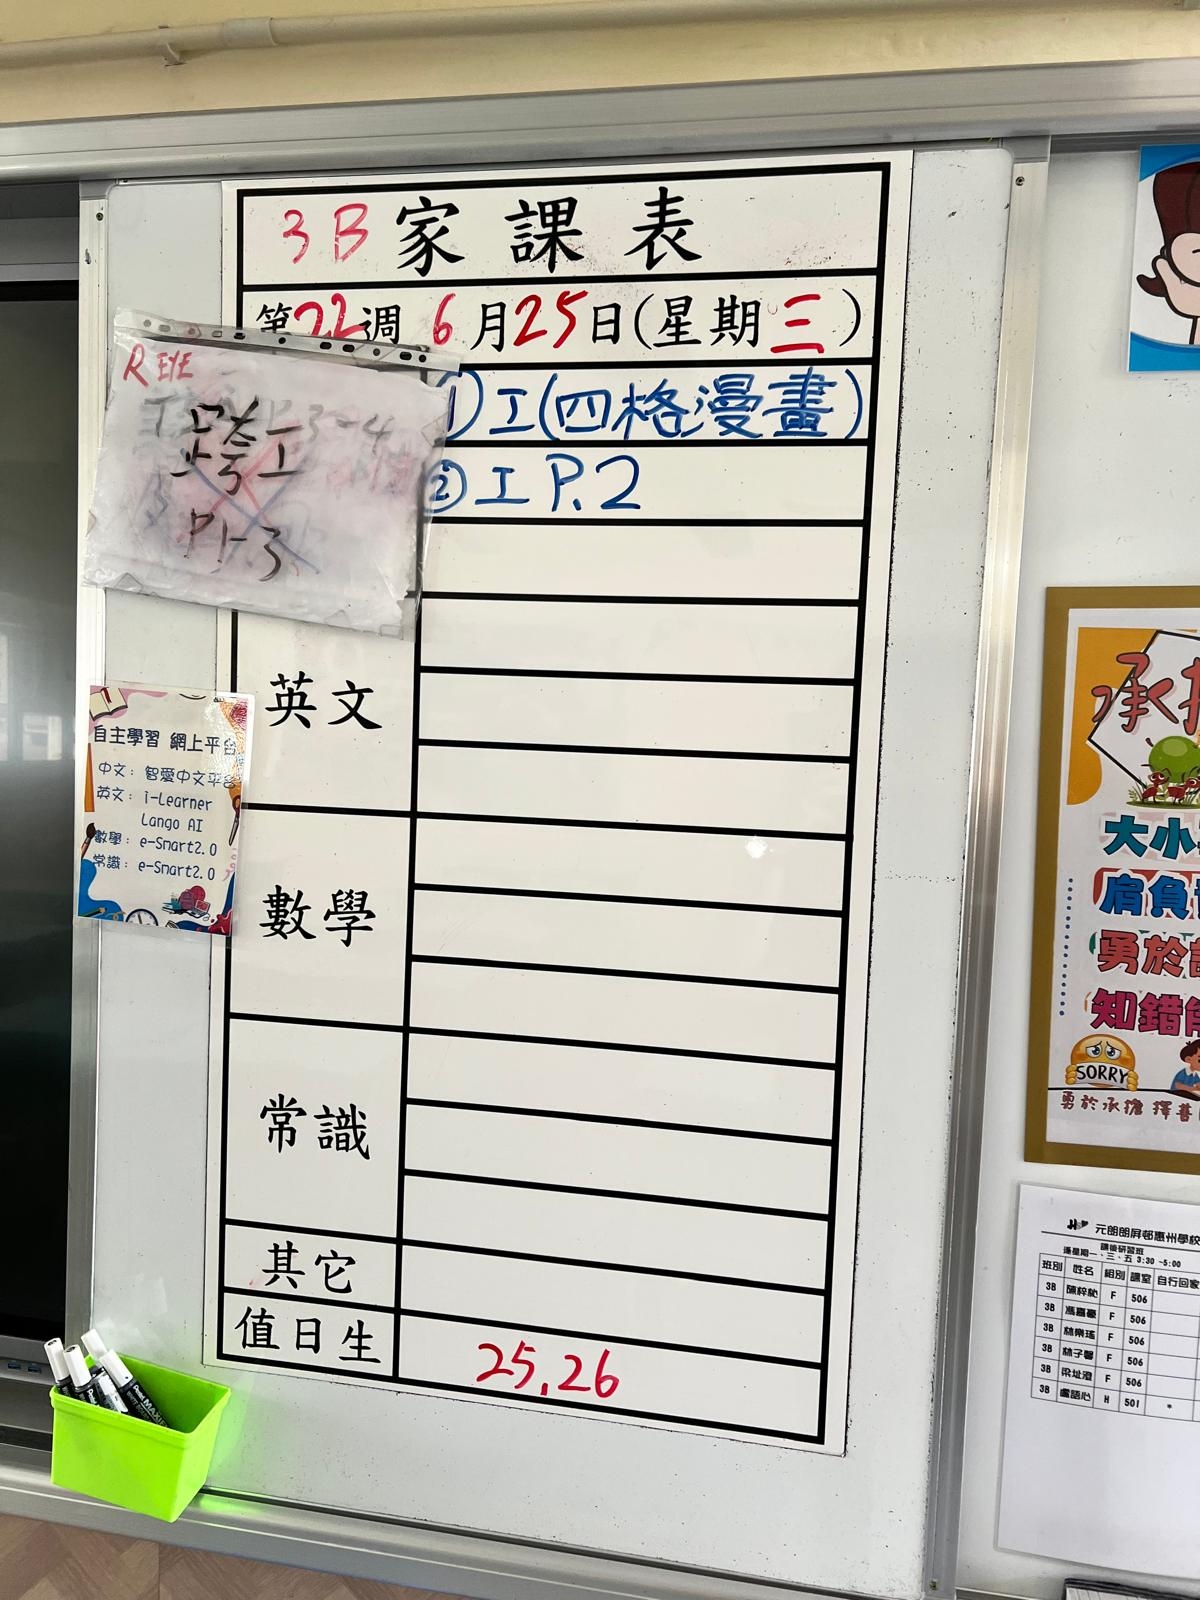 3B 家課表
第22週 6月25日(星期三)
R EYE
P1-3
①工(四格漫畫)
②工 P.2
英文
數學
常識
其它
值日生
25,26
自主學習 網上平台
中文：智愛中文平台
英文：i-Learner
Lango AI
數學：e-Smart2.0
常識：e-Smart2.0
承
大小
肩負
勇於
知錯
SORRY
勇於承擔 擇善
元朗朗屏邨惠州學校
課後研習班
逢星期一、三、五 3:30 ~5:00
班別 姓名 組別 課室 自行回家
3B F 506
3B F 506
3B 林樂瑤 F 506
3B 林子馨 F 506
3B 梁址澄 F 506
3B 盧語心 H 501 *
Pentel MAXIFLO